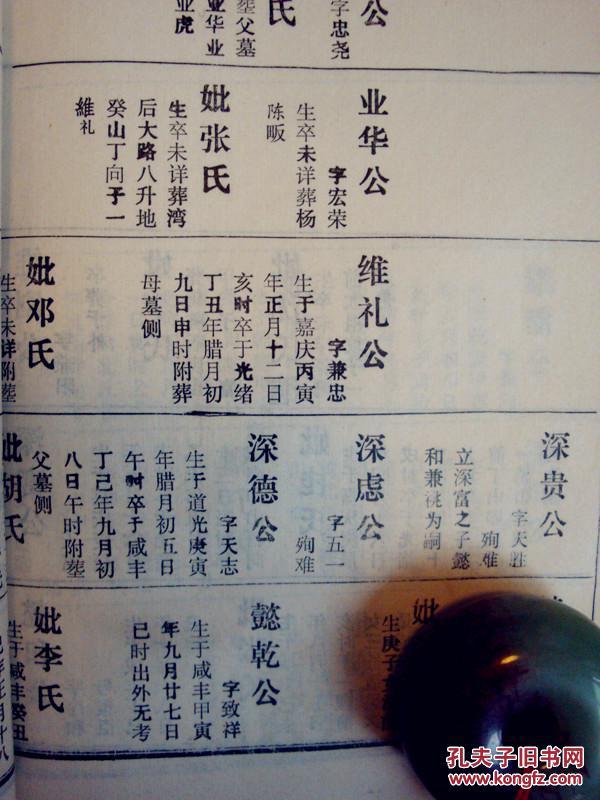 公
字忠尧
氏
茔父墓
业华业
业虎
业华公
字宏荣
生卒未详葬杨
陈畈
妣张氏
生卒未详葬湾
后大路八升地
癸山丁向子一
維礼
维礼公
字兼忠
生于嘉庆丙寅
年正月十二日
亥时卒于光绪
丁丑年腊月初
九日申时附葬
母墓侧
妣邓氏
生卒未详附塟
深贵公
字天胜
殉难
立深富之子懿
和兼祧为嗣
深虑公
字五一
殉难
深德公
字天志
生于道光庚寅
年腊月初五日
午时卒于咸丰
丁己年九月初
八日午时附塟
父墓侧
妣胡氏
妣
生庚子
懿乾公
字致祥
生于咸丰甲寅
年九月廿七日
巳时出外无考
妣李氏
生于咸丰癸丑
年正月十八
孔夫子旧书网
www.kongfz.com